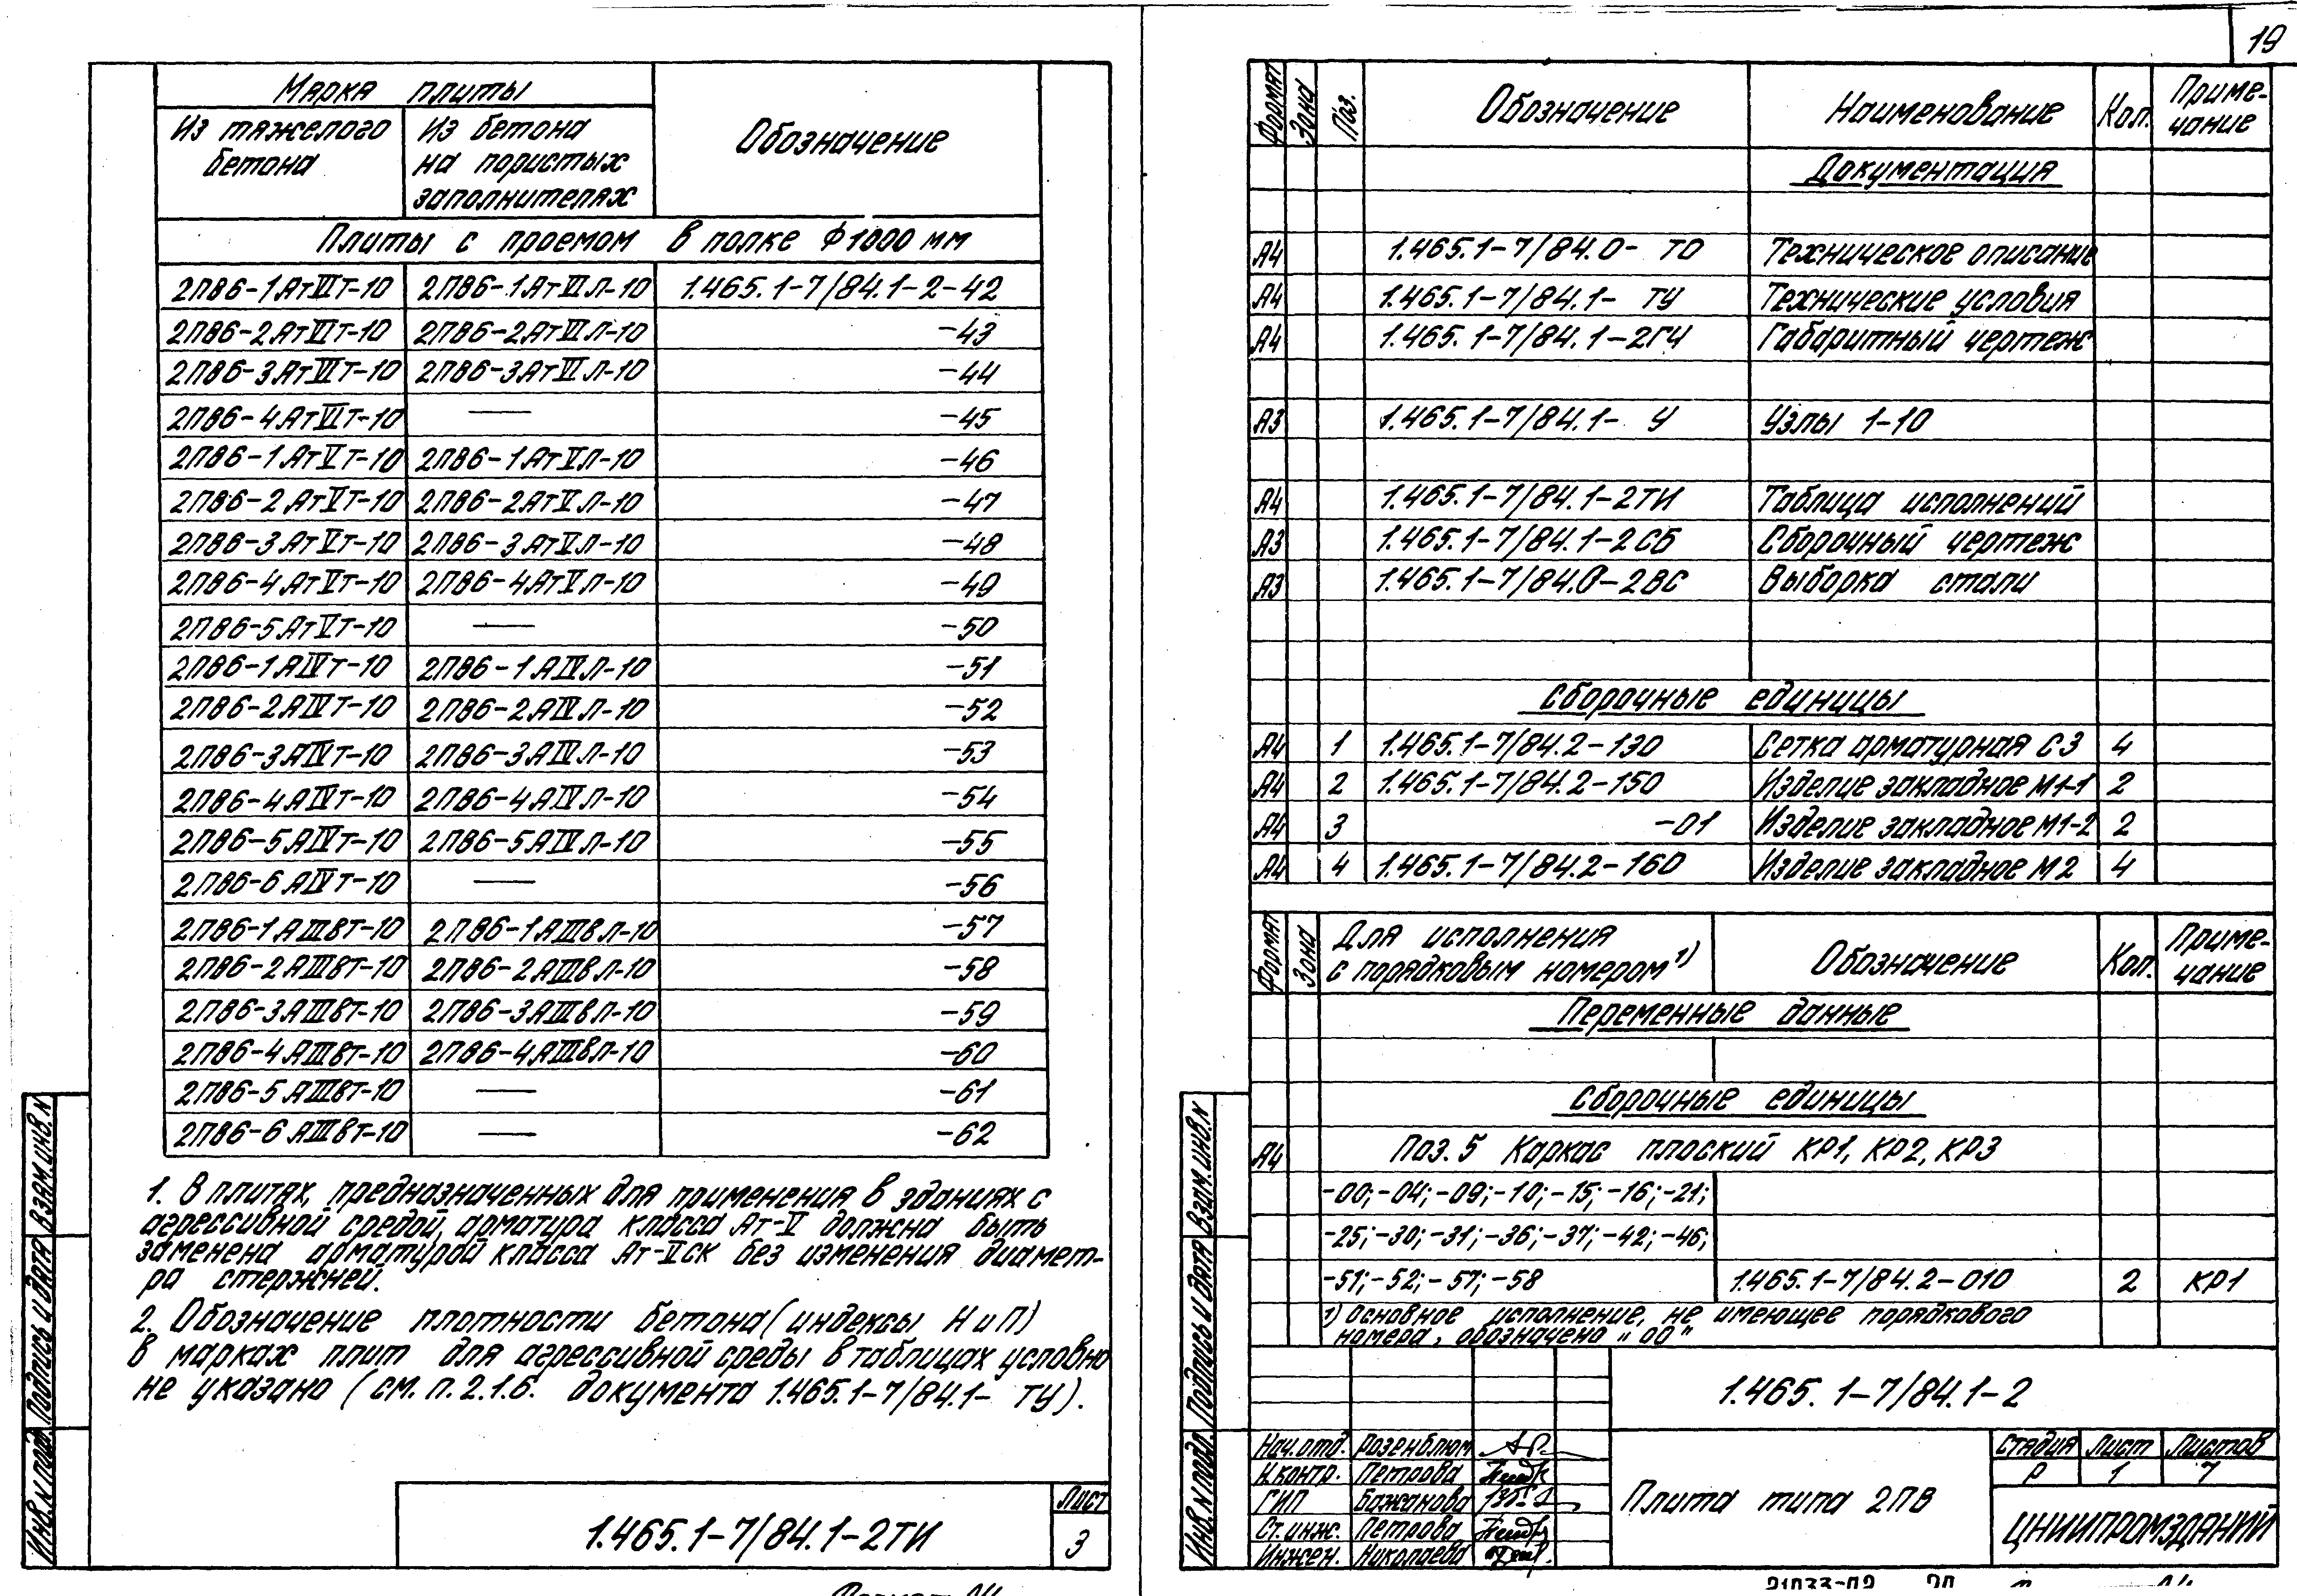 19
Марка плиты
Из тяжелого бетона
Из бетона на пористых заполнителях
Обозначение
Плиты с проемом в полке ф1000 мм
2ПВ6-1АтVIТ-10 2ПВ6-1АтVIП-10 1.465.1-7/84.1-2-42
2ПВ6-2АтVIТ-10 2ПВ6-2АтVIП-10 -43
2ПВ6-3АтVIТ-10 2ПВ6-3АтVIП-10 -44
2ПВ6-4АтVIТ-10 — -45
2ПВ6-1АтVТ-10 2ПВ6-1АтVП-10 -46
2ПВ6-2АтVТ-10 2ПВ6-2АтVП-10 -47
2ПВ6-3АтVТ-10 2ПВ6-3АтVП-10 -48
2ПВ6-4АтVТ-10 2ПВ6-4АтVП-10 -49
2ПВ6-5АтVТ-10 — -50
2ПВ6-1АIVТ-10 2ПВ6-1АIVП-10 -51
2ПВ6-2АIVТ-10 2ПВ6-2АIVП-10 -52
2ПВ6-3АIVТ-10 2ПВ6-3АIVП-10 -53
2ПВ6-4АIVТ-10 2ПВ6-4АIVП-10 -54
2ПВ6-5АIVТ-10 2ПВ6-5АIVП-10 -55
2ПВ6-6АIVТ-10 — -56
2ПВ6-1АIIIвТ-10 2ПВ6-1АIIIвП-10 -57
2ПВ6-2АIIIвТ-10 2ПВ6-2АIIIвП-10 -58
2ПВ6-3АIIIвТ-10 2ПВ6-3АIIIвП-10 -59
2ПВ6-4АIIIвТ-10 2ПВ6-4АIIIвП-10 -60
2ПВ6-5АIIIвТ-10 — -61
2ПВ6-6АIIIвТ-10 — -62
1. В плитах, предназначенных для применения в зданиях с
агрессивной средой, арматура класса Ат-V должна быть
заменена арматурой класса Ат-VСК без изменения диамет-
ра стержней.
2. Обозначение плотности бетона (индексы Н и П)
в марках плит для агрессивной среды в таблицах условно
не указано (см. п. 2.1.6. документа 1.465.1-7/84.1- ТУ).
Инв.N подл. Подпись и дата Взам.инв.N
1.465.1-7/84.1-2ТИ
Лист
3
Формат Зона Поз. Обозначение Наименование Кол. Приме-
чание
Документация
А4 1.465.1-7/84.0- ТО Техническое описание
А4 1.465.1-7/84.1- ТУ Технические условия
А4 1.465.1-7/84.1-2ГЧ Габаритный чертеж
А3 1.465.1-7/84.1- У Узлы 1-10
А4 1.465.1-7/84.1-2ТИ Таблица исполнений
А3 1.465.1-7/84.1-2СБ Сборочный чертеж
А3 1.465.1-7/84.0-2ВС Выборка стали
Сборочные единицы
А4 1 1.465.1-7/84.2-130 Сетка арматурная С3 4
А4 2 1.465.1-7/84.2-150 Изделие закладное М1-1 2
А4 3 -01 Изделие закладное М1-2 2
А4 4 1.465.1-7/84.2-160 Изделие закладное М2 4
Формат Зона Для исполнения
с порядковым номером¹⁾ Обозначение Кол. Приме-
чание
Переменные данные
Сборочные единицы
А4 Поз. 5 Каркас плоский КР1, КР2, КР3
-00; -04; -09; -10; -15; -16; -21;
-25; -30; -31; -36; -37; -42; -46;
-51; -52; -57; -58 1.465.1-7/84.2-010 2 КР1
¹⁾ Основное исполнение, не имеющее порядкового
номера, обозначено „00"
Инв.N подл. Подпись и дата Взам.инв.N
1.465.1-7/84.1-2
Нач.отд. Розенблюм
Н.контр. Петрова
ГИП Бажанова
Ст.инж. Петрова
Инжен. Николаева
Плита типа 2ПВ
Стадия Лист Листов
Р 1 7
ЦНИИПРОМЗДАНИЙ